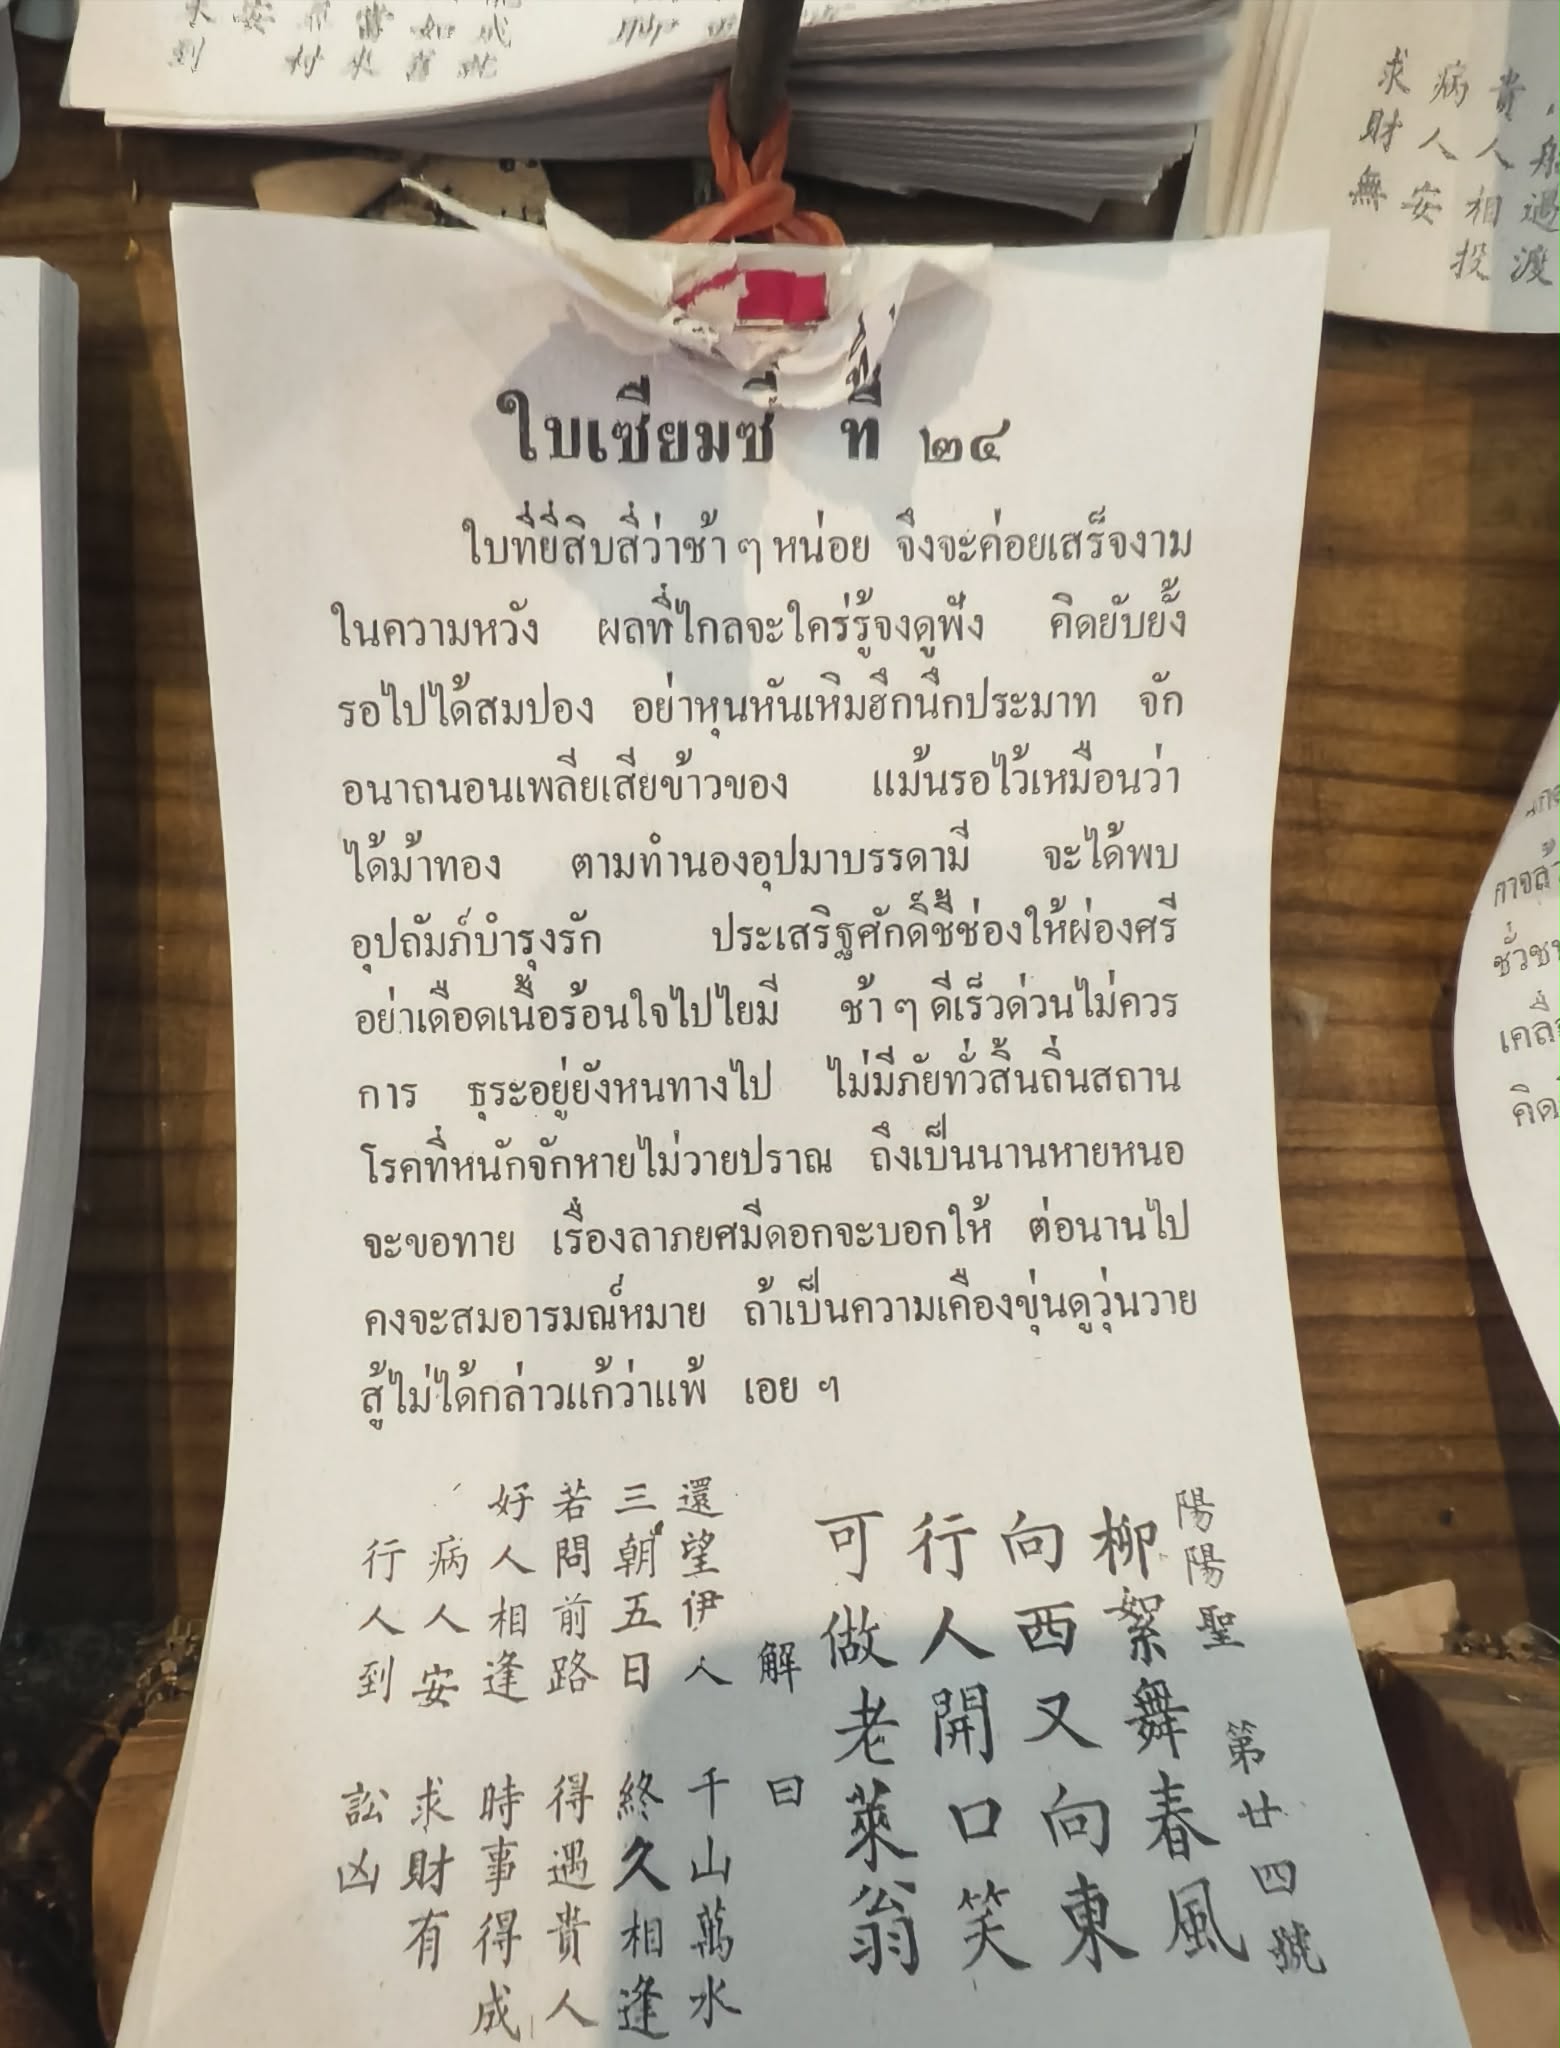 ใบเซียมซี ที่ ๒๔
ใบที่ยี่สิบสี่ว่าช้า ๆ หน่อย จึงจะค่อยเสร็จงาม
ในความหวัง ผลที่ไกลจะใคร่รู้จงดูฟัง คิดยับยั้ง
รอไปได้สมปอง อย่าหุนหันเหิมฮึกนึกประมาท จัก
อนาถนอนเพลียเสียข้าวของ แม้นรอไว้เหมือนว่า
ได้ม้าทอง ตามทำนองอุปมาบรรดามี จะได้พบ
อุปถัมภ์บำรุงรัก ประเสริฐศักดิ์ชี้ช่องให้ผ่องศรี
อย่าเดือดเนื้อร้อนใจไปไยมี ช้า ๆ ดีเร็วด่วนไม่ควร
การ ธุระอยู่ยังหนทางไป ไม่มีภัยทั่วสิ้นถิ่นสถาน
โรคที่หนักจักหายไม่วายปราณ ถึงเป็นนานหายหนอ
จะขอทาย เรื่องลาภยศมีดอกจะบอกให้ ต่อนานไป
คงจะสมอารมณ์หมาย ถ้าเป็นความเคืองขุ่นดูวุ่นวาย
สู้ไม่ได้กล่าวแก้ว่าแพ้ เอย ฯ
陽陽聖 第廿四號
柳絮舞春風
向西又向東
行人開口笑
可做老萊翁
解曰
還望伊人 千山萬水
三朝五日 終久相逢
若問前路 得遇貴人
好人相逢 時事得成
病人安 求財有
行人到 訟凶
貴人相投
病人安
求財無